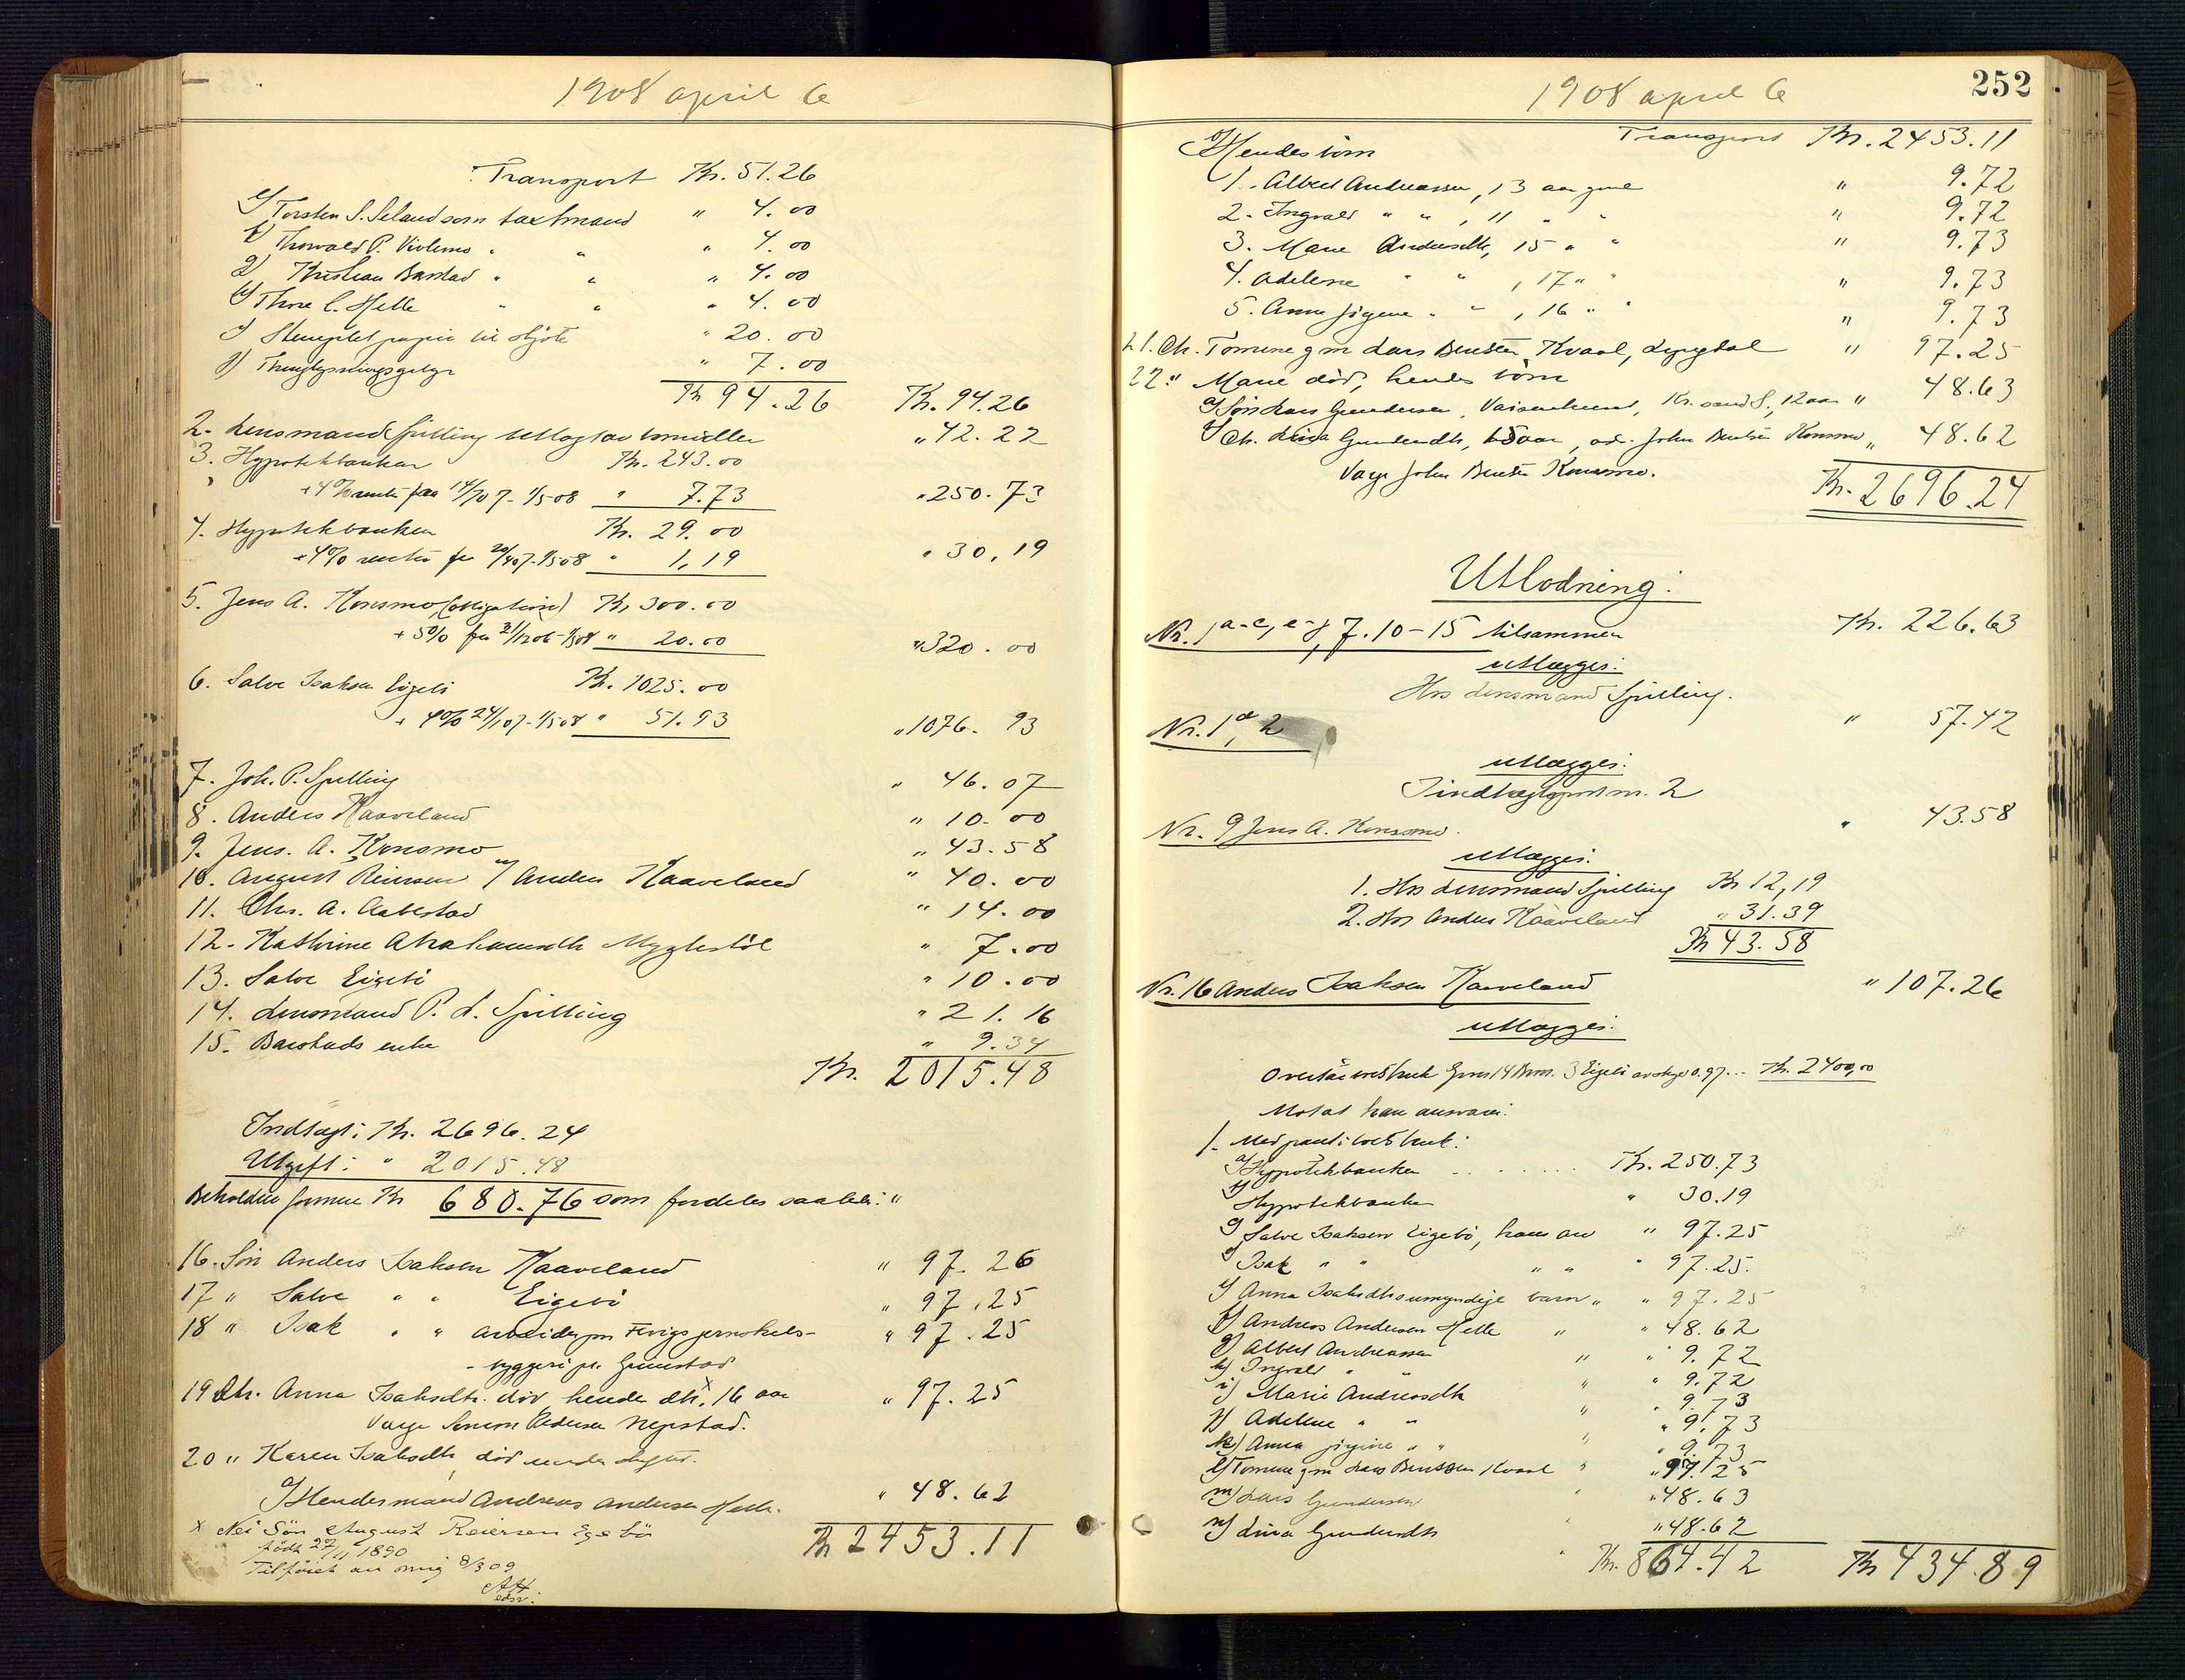 1908 april 6
Transport Kr. 51.26
e) Torsten S. Seland som taxtmand " 4.00
f) Thorvald P. Viblemo " " " 4.00
g) Kristian Barstad " " " 4.00
h) Thore C. Helle " " " 4.00
i) Stemplet papir til skjøte " 20.00
j) Thinglysningsgebyr " 7.00
Kr 94.26 Kr. 94.26
2. Lensmand Spilling utlagt av bomidler " 42.22
3. Hypotekbanken Kr. 243.00
+ 4% renter fra 14/7 07 - 1/5 08 " 7.73 " 250.73
4. Hypotekbanken Kr. 29.00
+ 4% renter fra 20/4 07 - 1/5 08 " 1,19 " 30,19
5. Jens A. Konsmo (obligation) Kr. 300.00
+ 5% fra 31/12 06 - 1/5 08 " 20.00 " 320.00
6. Salve Isaksen Eigebø Kr. 1025.00
+ 4% 24/1 07 - 1/5 08 " 51.93 " 1076.93
7. Joh. P. Spilling " 46.07
8. Anders Kaaveland " 10.00
9. Jens. A. Konsmo " 43.58
10. August Reiersen v/ Anders Kaaveland " 40.00
11. Chr. A. Aabestad " 14.00
12. Kathrine Abrahamsdtr Myglestøl " 7.00
13. Salve Eigebø " 10.00
14. Lensmand P. L. Spilling " 21.16
15. Barstads enke " 9.34
Kr. 2015.48
Indtægt: Kr. 2696.24
Utgift: " 2015.48
Beholden formue Kr 680.76 som fordeles saaledes: "
16. Søn Anders Isaksen Kaaveland " 97.26
17 " Salve " " Eigebø " 97.25
18 " Isak " " arbeider paa Fevigs jernskibs- " 97.25
- byggeri pr. Grimstad
19 Dtr. Anna Isaksdtr. død, hendes dtr. x 16 aar " 97.25
Verge Simon Pedersen Nepstad.
20 " Karen Isaksdtr, død
a) Hendes mand Andreas Andersen Helle. " 48.62
x Nei Søn August Reiersen Egebø Kr 2453.11
født 27/11 1890
Tilføiet av mig 8/3 09
AH
edsv.
252
1908 april 6
b) Hendes børn Transport Kr. 2453.11
1. Albert Andreassen, 13 aar gml " 9.72
2. Ingvald " " , 11 " " " 9.72
3. Marie Andreasdtr, 15 " " " 9.73
4. Adeline " " , 17 " " " 9.73
5. Anna Jigine " " , 16 " " " 9.73
21. Dtr. Tomine gm Lars Bentsen Kvaal, Lyngdal " 97.25
22. " Marie død, hendes børn
a) Søn Lars Gundersen, Vaisenhuset, Kr.sand S., 12 aar " 48.63
b) Dtr. Lina Gundersdtr, 15 aar, adr. John Bentsen Konsmo " 48.62
Verge John Bentsen Konsmo.
Kr. 2696.24
Utlodning:
Nr. 1 a-c, e-j, 7. 10-15 tilsammen Kr. 226.63
utlægges:
Hos lensmand Spilling.
Nr. 1 d, 2 " 57.42
utlægges:
I indtægtspost nr. 2
Nr. 9 Jens A. Konsmo. " 43.58
utlægges:
1. Hos lensmand Spilling Kr 12,19
2. Hos Anders Kaaveland " 31.39
Kr 43.58
Nr. 16 Anders Isaksen Kaaveland " 107.26
utlægges:
Overtar boets bruk Gnr. 14 Brnr. 3 Eigebø av skyld 0.97 .. Kr. 2400,00
Motat han ansvarer:
1. Med pant i boets bruk:
a) Hypotekbanken ....... Kr. 250.73
b) Hypotekbanken " 30.19
c) Salve Isaksen Eigebø, hans arv " 97.25
d) Isak " " " " " 97.25.
e) Anna Isaksdtrs umyndige barn " " 97.25
f) Andreas Andersen Helle " " 48.62
g) Albert Andreassen " " 9.72
h) Ingvald " " " 9.72
i) Marie Andreasdtr " " 9.73
j) Adeline " " " " 9.73
k) Anna Jigine " " " " 9.73
l) Tomine gm Lars Bentsen Kvaal " " 97.25
m) Lars Gundersen " " 48.63
n) Lina Gundersdtr " " 48.62
" Kr. 864.42 Kr 434.89